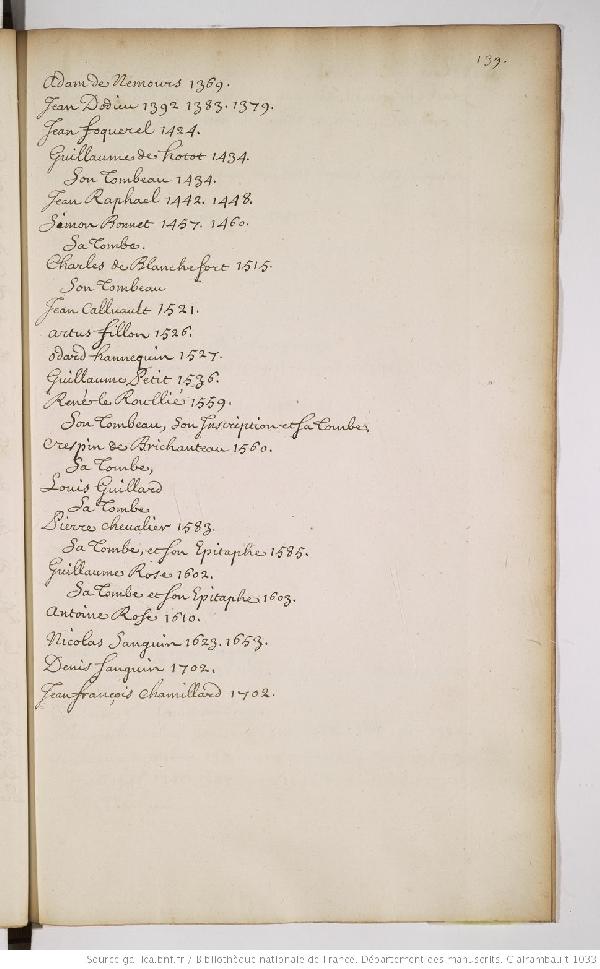 139.
Adam de Nemours 1369.
Jean Dodieu 1392 1383. 1379.
Jean foquerel 1424.
Guillaume de hotot 1434.
Son Tombeau 1434.
Jean Raphael 1442. 1448.
Simon Bonnet 1457. 1460.
Sa Tombe.
Charles de Blanchefort 1515.
Son Tombeau
Jean Calluault 1521.
artus fillon 1526.
odard hannequin 1527.
Guillaume Petit 1536.
René le Roullié 1559.
Son Tombeau, Son Inscription et sa Tombe,
Crespin de Brichanteau 1560.
Sa Tombe,
Louis Guillard
Sa Tombe
Pierre chevalier 1583.
Sa Tombe, et son Epitaphe 1585.
Guillaume Rose 1602.
Sa Tombe et son Epitaphe 1603.
Antoine Rose 1610.
Nicolas Sanguin 1623. 1653.
Denis Sanguin 1702.
Jean françois Chamillard 1702.
Source gallica.bnf.fr / Bibliothèque nationale de France. Département des manuscrits. Clairambault 1033